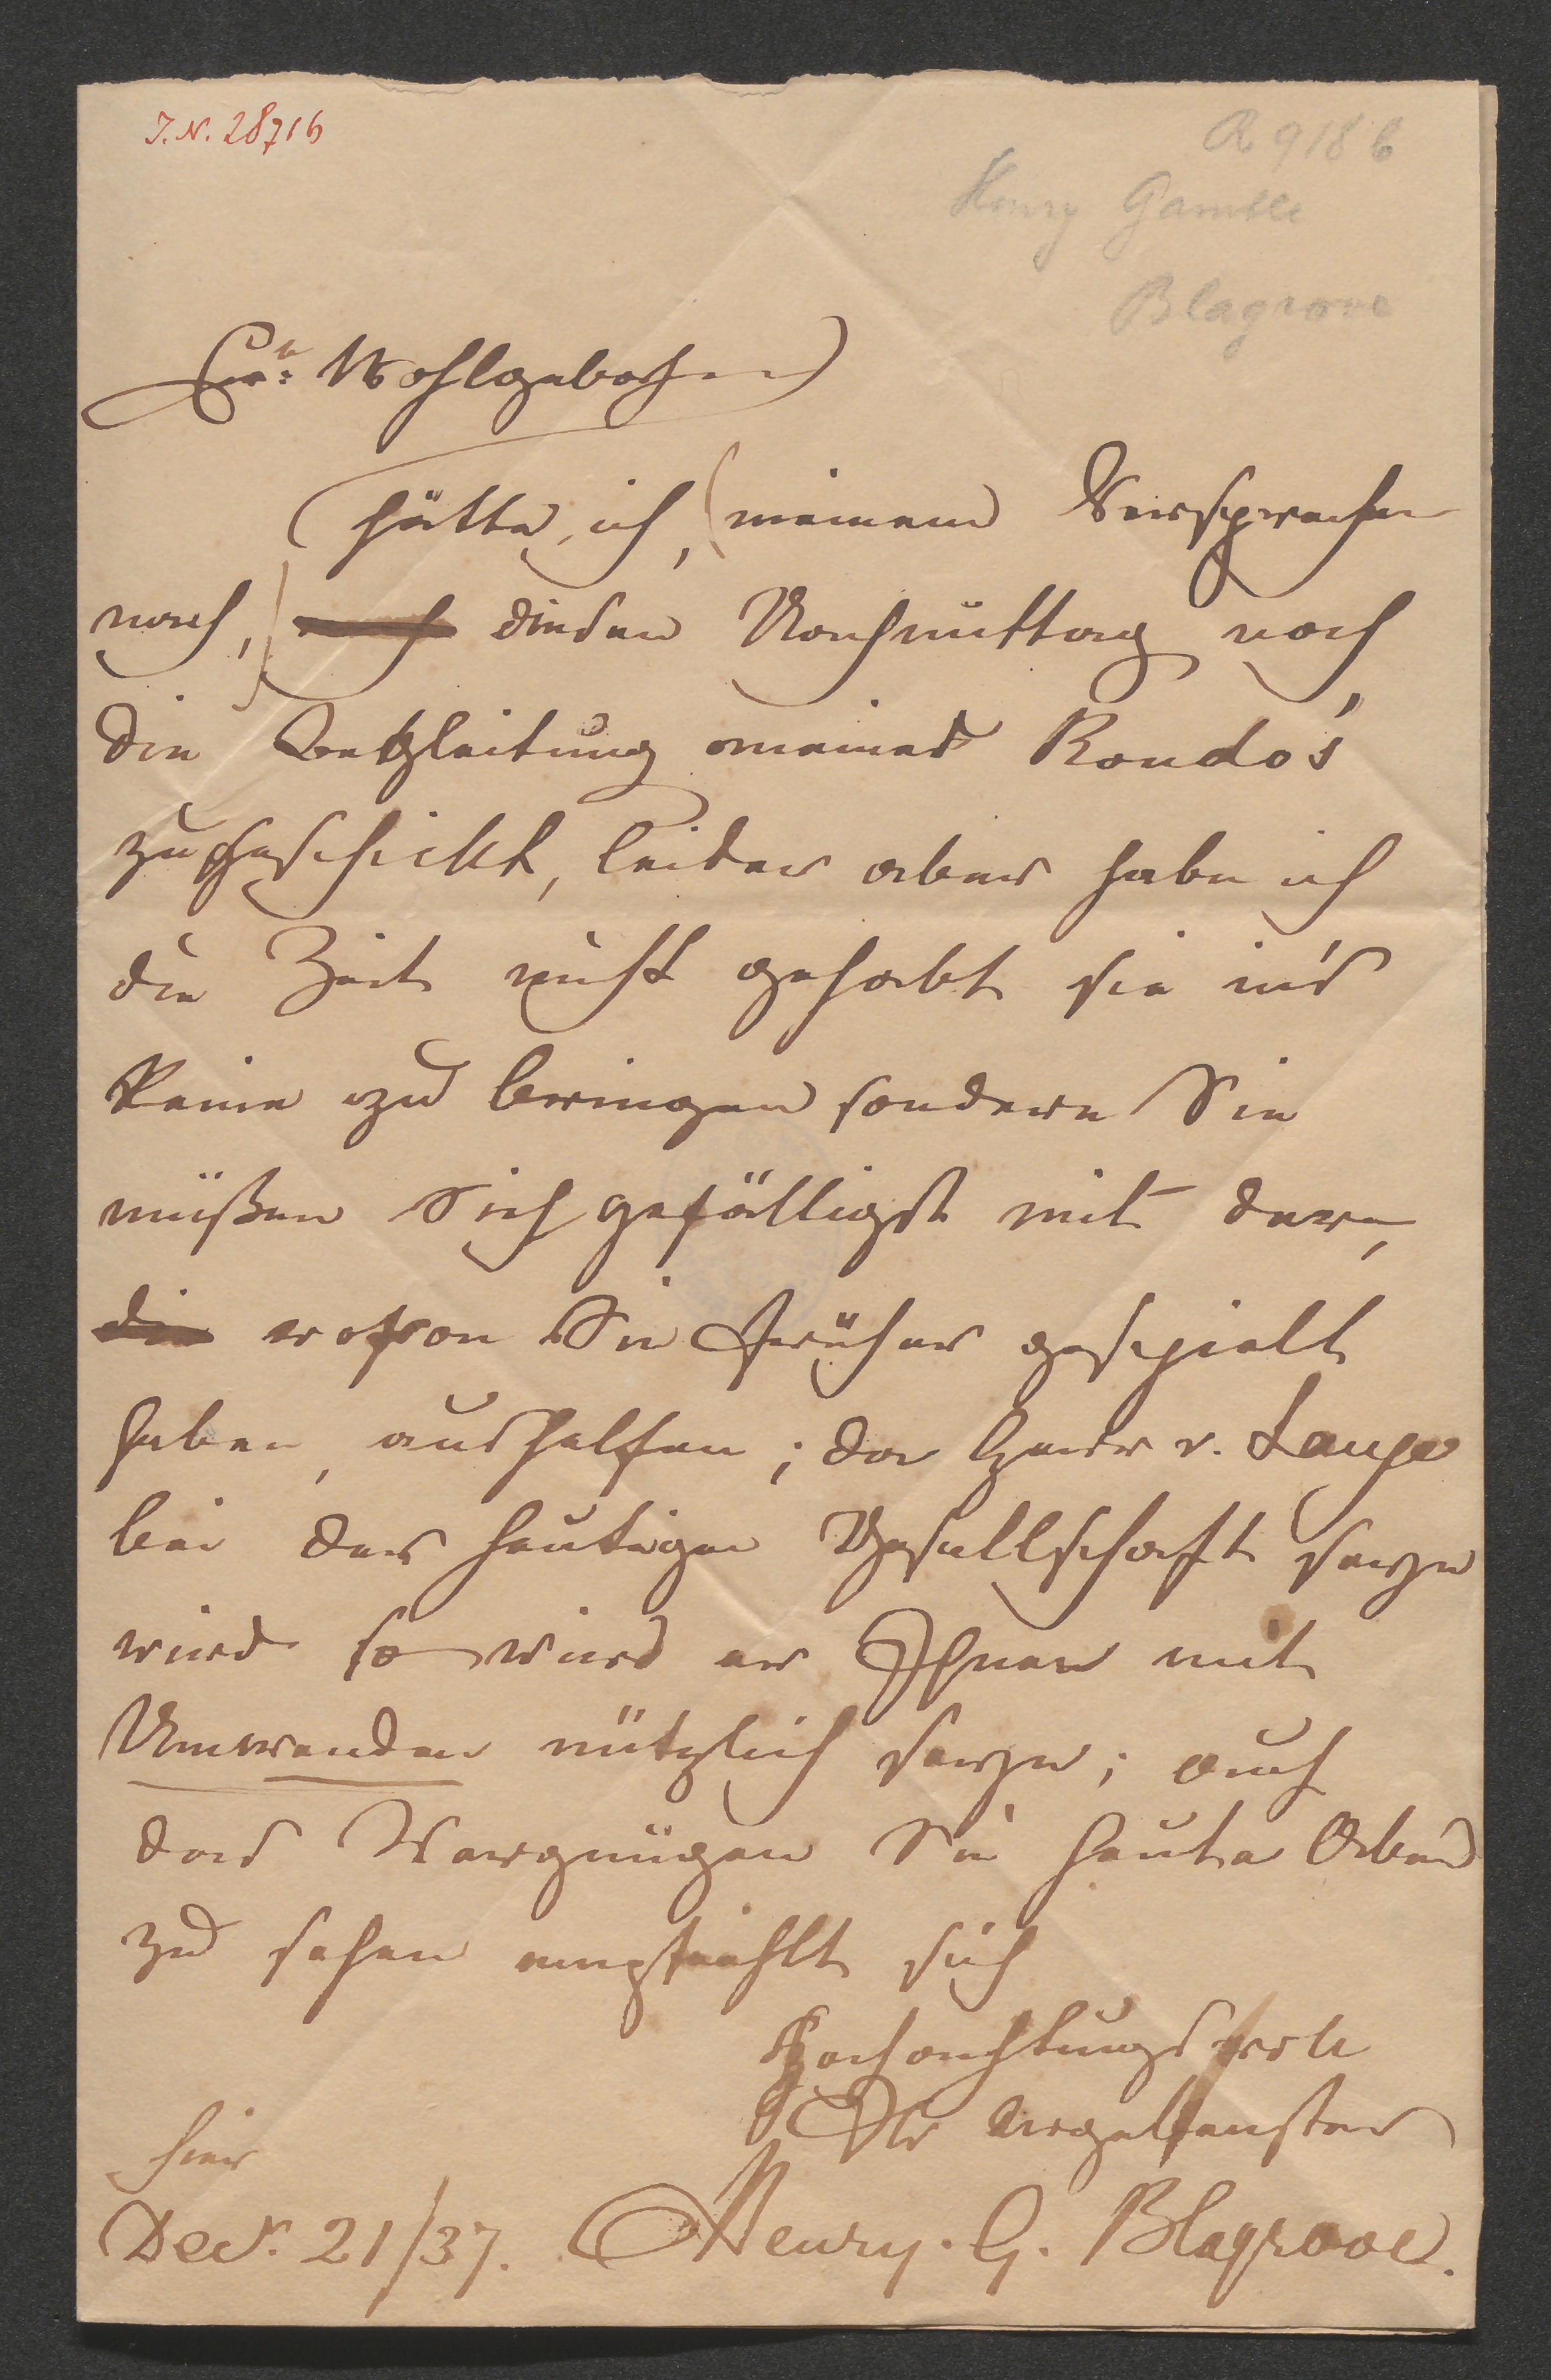 J.N. 28716
R 918 b
Henry Gamble
Blagrove
Eur: Wohlgeboren
hätte ich, (meinem Versprechen
nach,) diesen Nachmittag noch,
die Begleitung meines Rondo's
zugeschickt, leider aber habe ich
die Zeit nicht gehabt sie in's
Reine zu bringen sondern Sie
müßen Sich gefälligst mit der,
die wofon Sie früher gespielt
haben, aushelfen; da Herr v. Lange
bei der heutigen Gesellschaft seyn
wird so wird er Ihnen mit
Umwenden nützlich seyn; auch
das Vergnügen Sie heute Abend
zu sehen empfiehlt sich
Hochachtungsvoll
Ihr ergebenster
hier
Decr. 21/37. Henry. G. Blagrove.